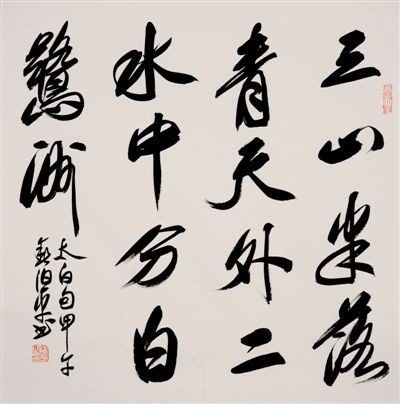 三山半落
青天外二
水中分白
鷺洲
太白句甲午